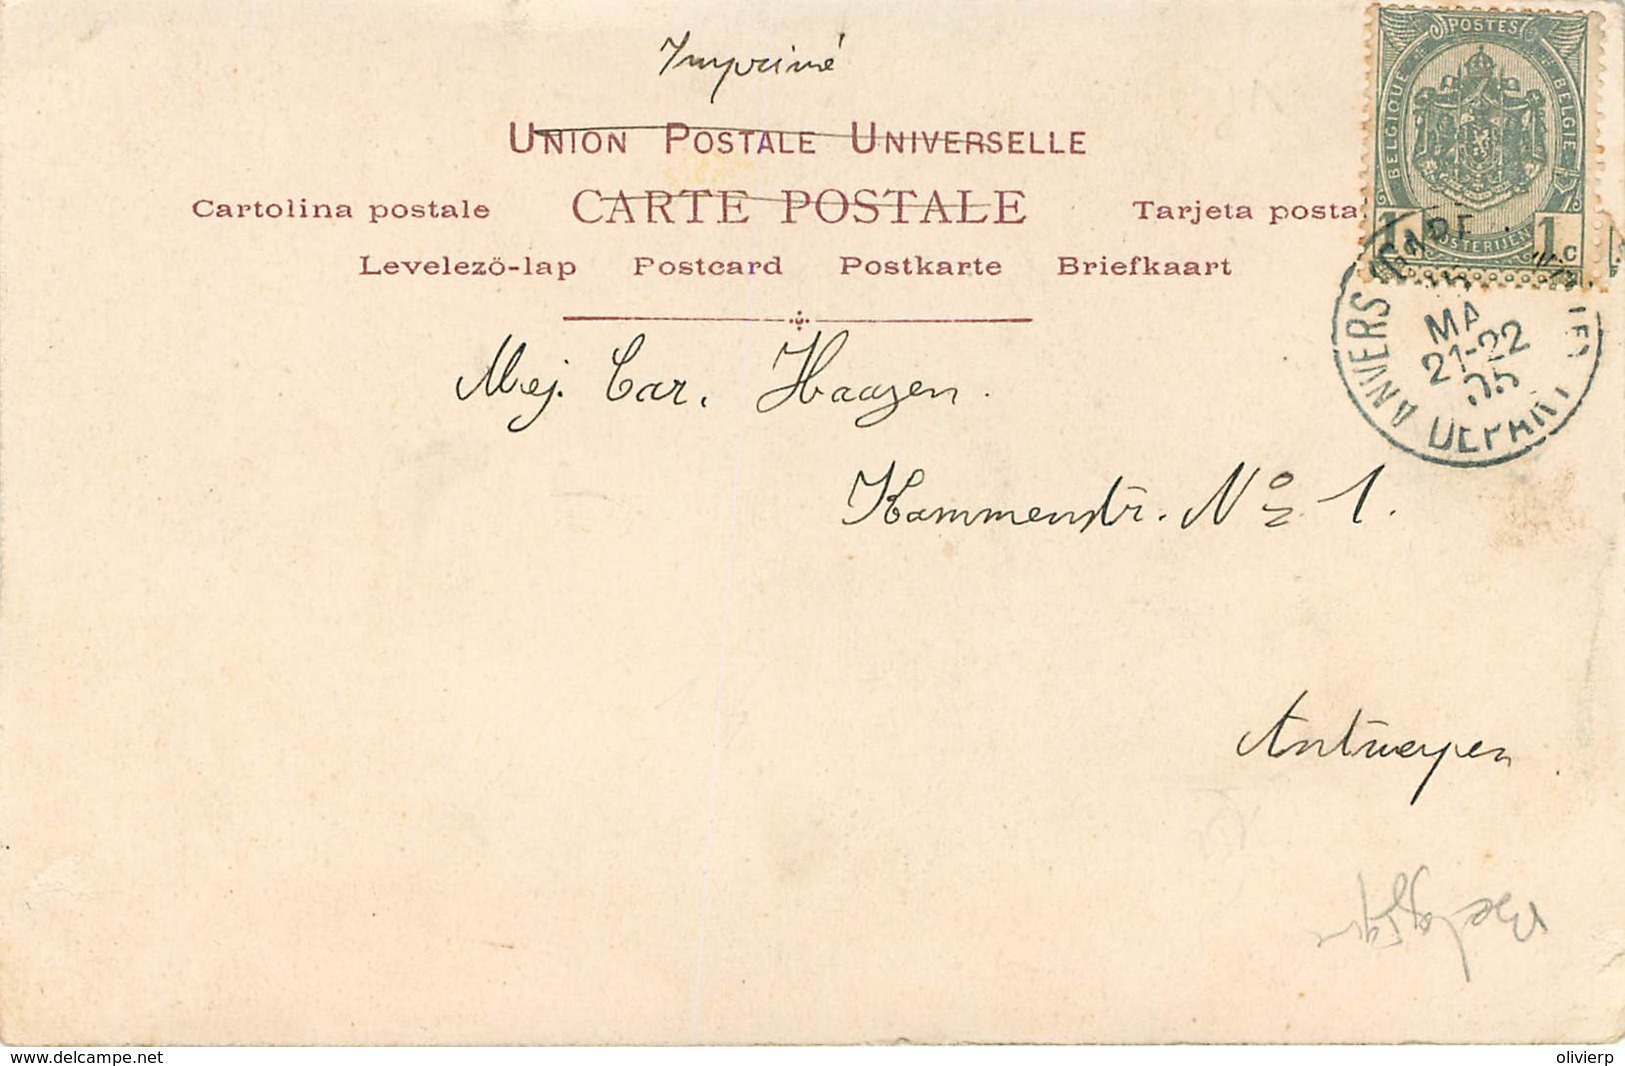 Imprimé
UNION POSTALE UNIVERSELLE
CARTE POSTALE
Cartolina postale
Tarjeta posta
Levelezö-lap Postcard Postkarte Briefkaart
POSTES
BELGIQUE
BELGIE
POSTERIJEN
1 1c
ANVERS GARE
MA
21-22
05
DEPART
Mej. Car. Haazen.
Kammenstr. No 1.
Antwerpen
www.delcampe.net
olivierp